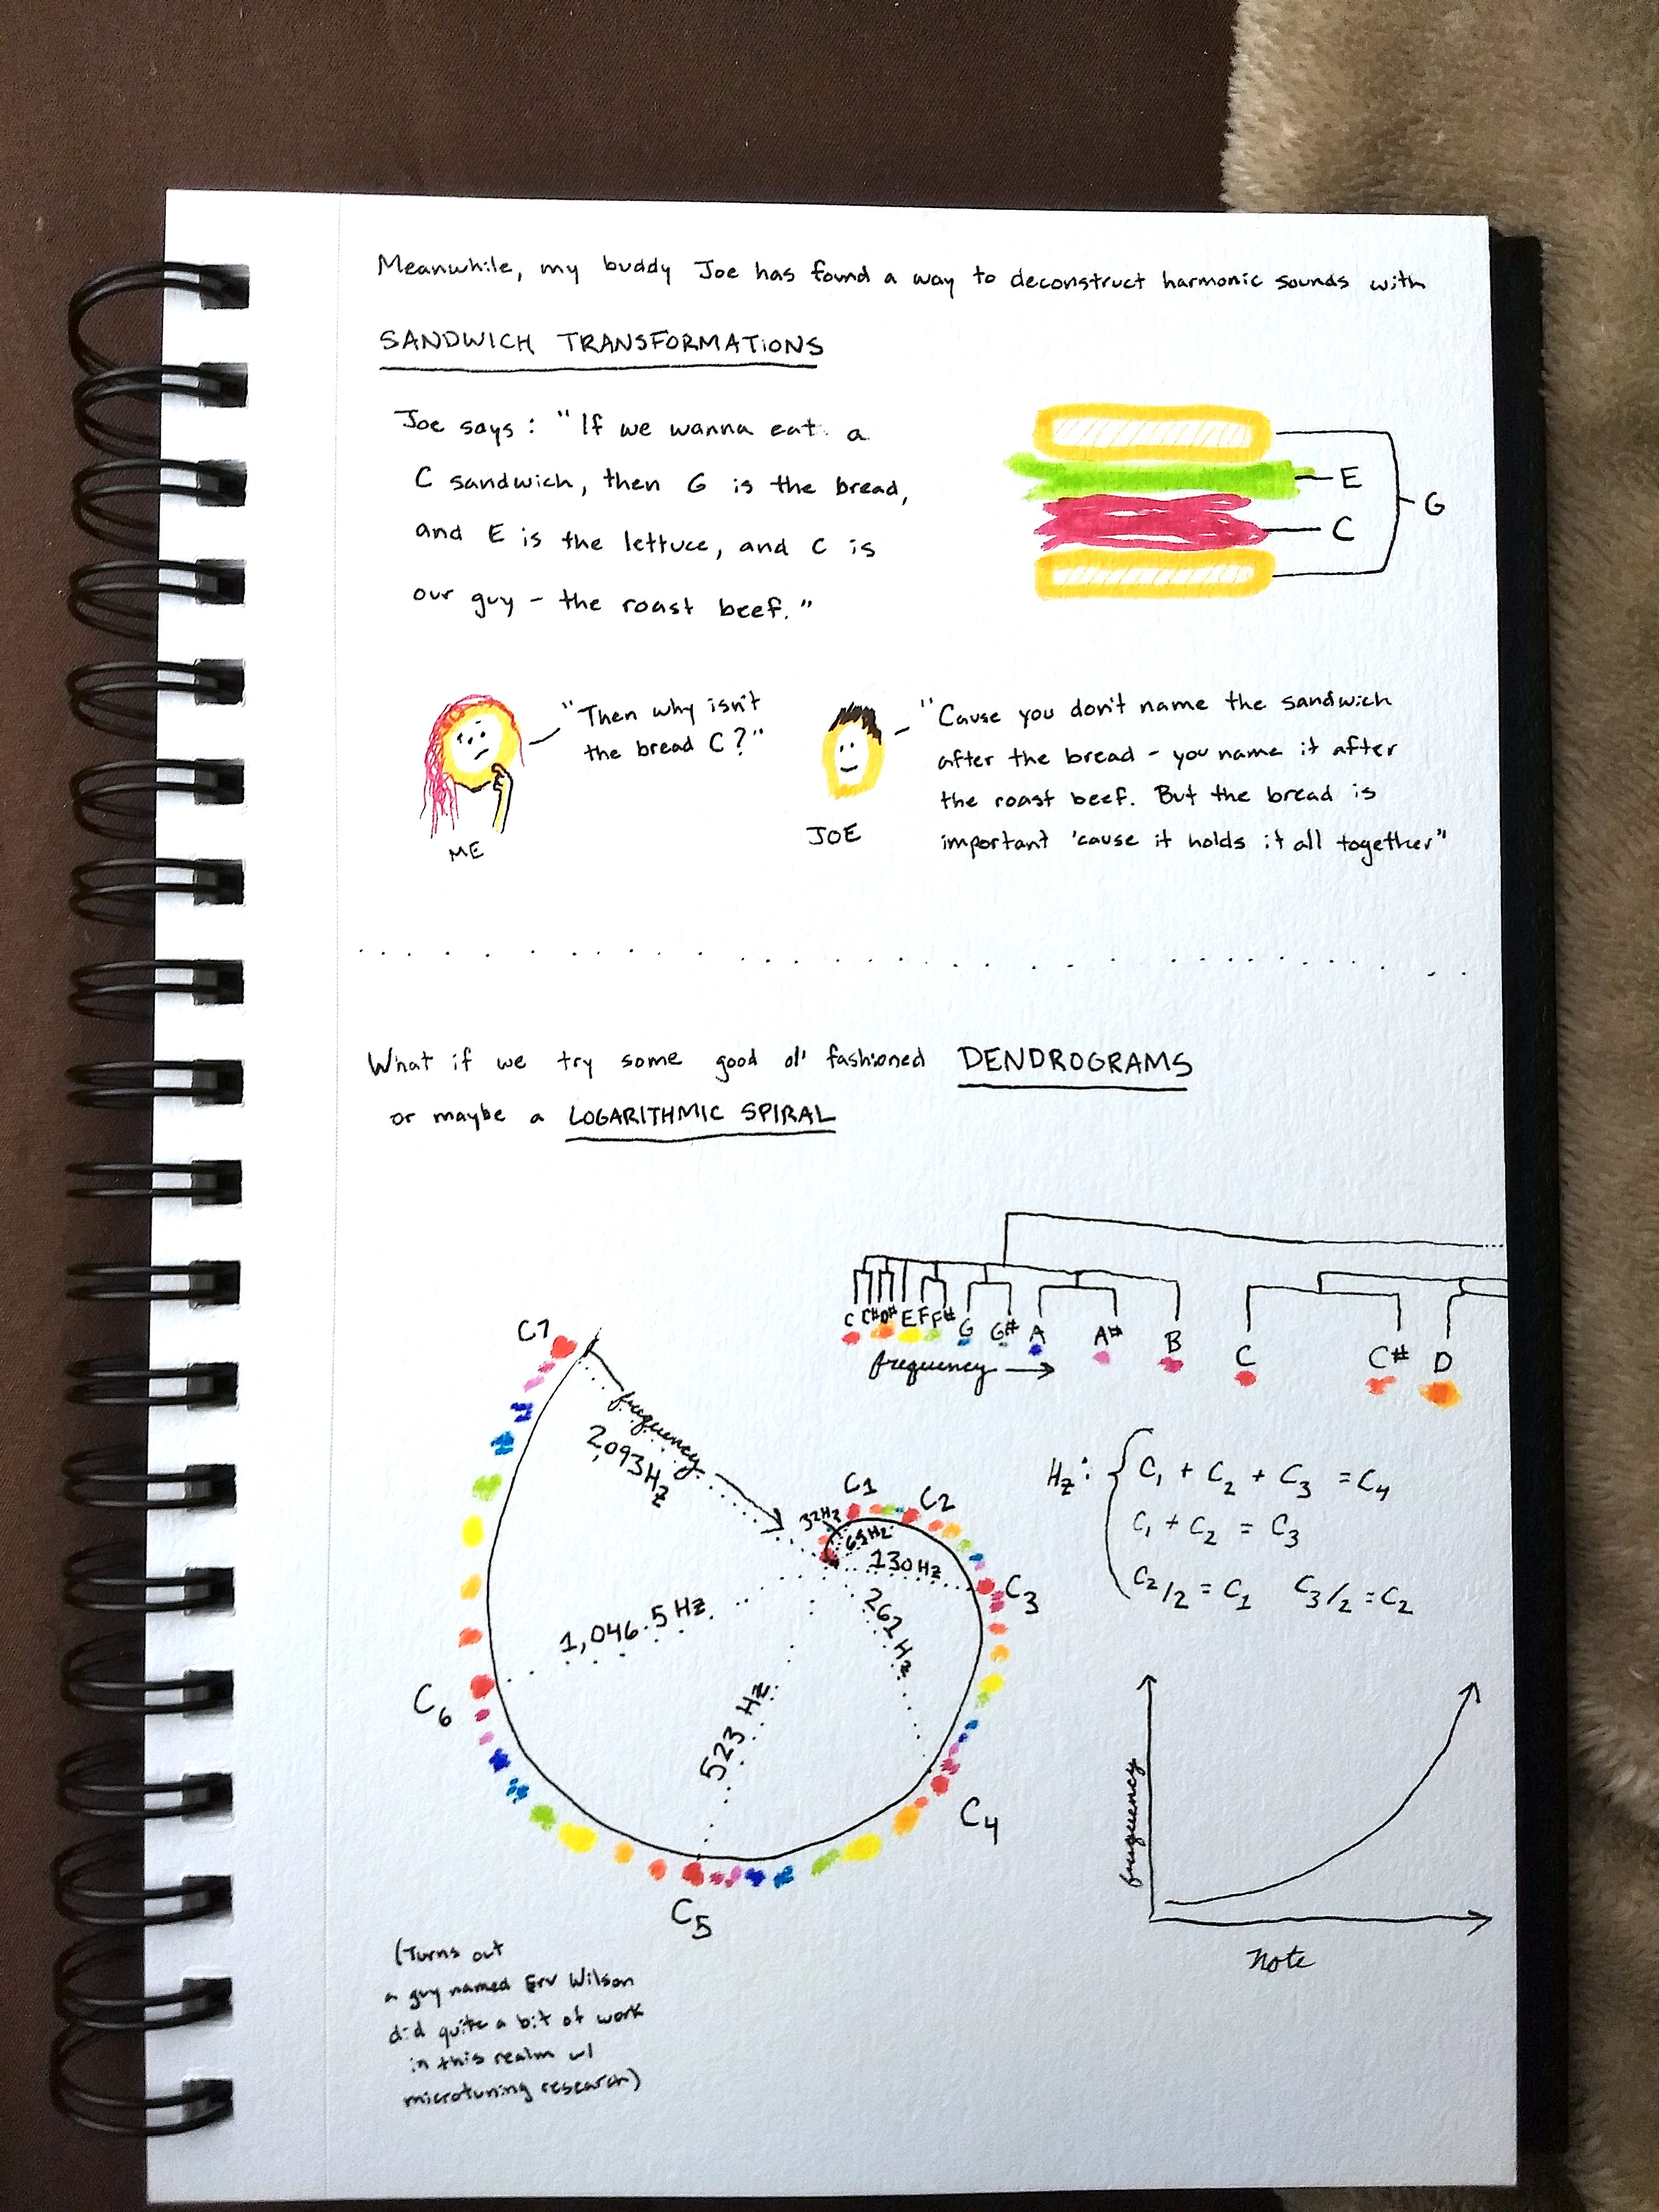 Meanwhile, my buddy Joe has found a way to deconstruct harmonic sounds with
SANDWICH TRANSFORMATIONS
Joe says: "If we wanna eat a
C sandwich, then G is the bread,
and E is the lettuce, and C is
our guy - the roast beef."
E
G
C
"Then why isn't
the bread C?"
ME
JOE
"Cause you don't name the sandwich
after the bread - you name it after
the roast beef. But the bread is
important 'cause it holds it all together"
What if we try some good ol' fashioned DENDROGRAMS
or maybe a LOGARITHMIC SPIRAL
C C# D# E F F# G G# A A# B C C# D
frequency →
C7
frequency
2,093 Hz
C1
C2
32Hz
65Hz
130 Hz
C3
262 Hz
1,046.5 Hz
523 Hz
C6
C4
C5
Hz: { C1 + C2 + C3 = C4
C1 + C2 = C3
C2/2 = C1 C3/2 = C2
frequency
Note
(Turns out
a guy named Erv Wilson
did quite a bit of work
in this realm w/
microtuning research)